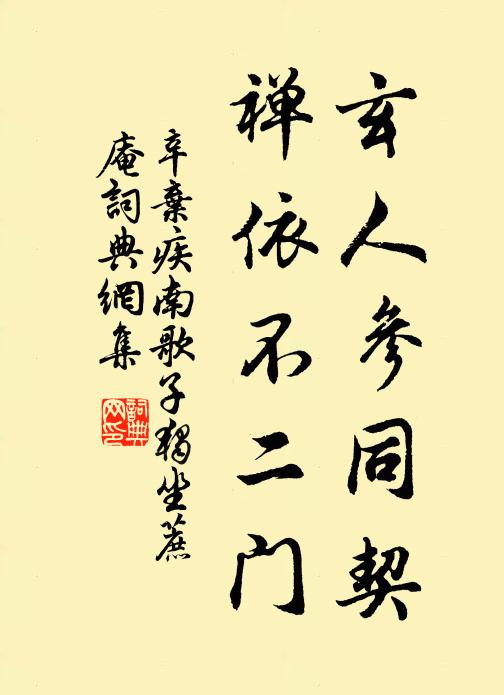 玄人參同契
禅依不二门
辛棄疾南歌子獨坐蔗
庵詞典網集
詞典
网印